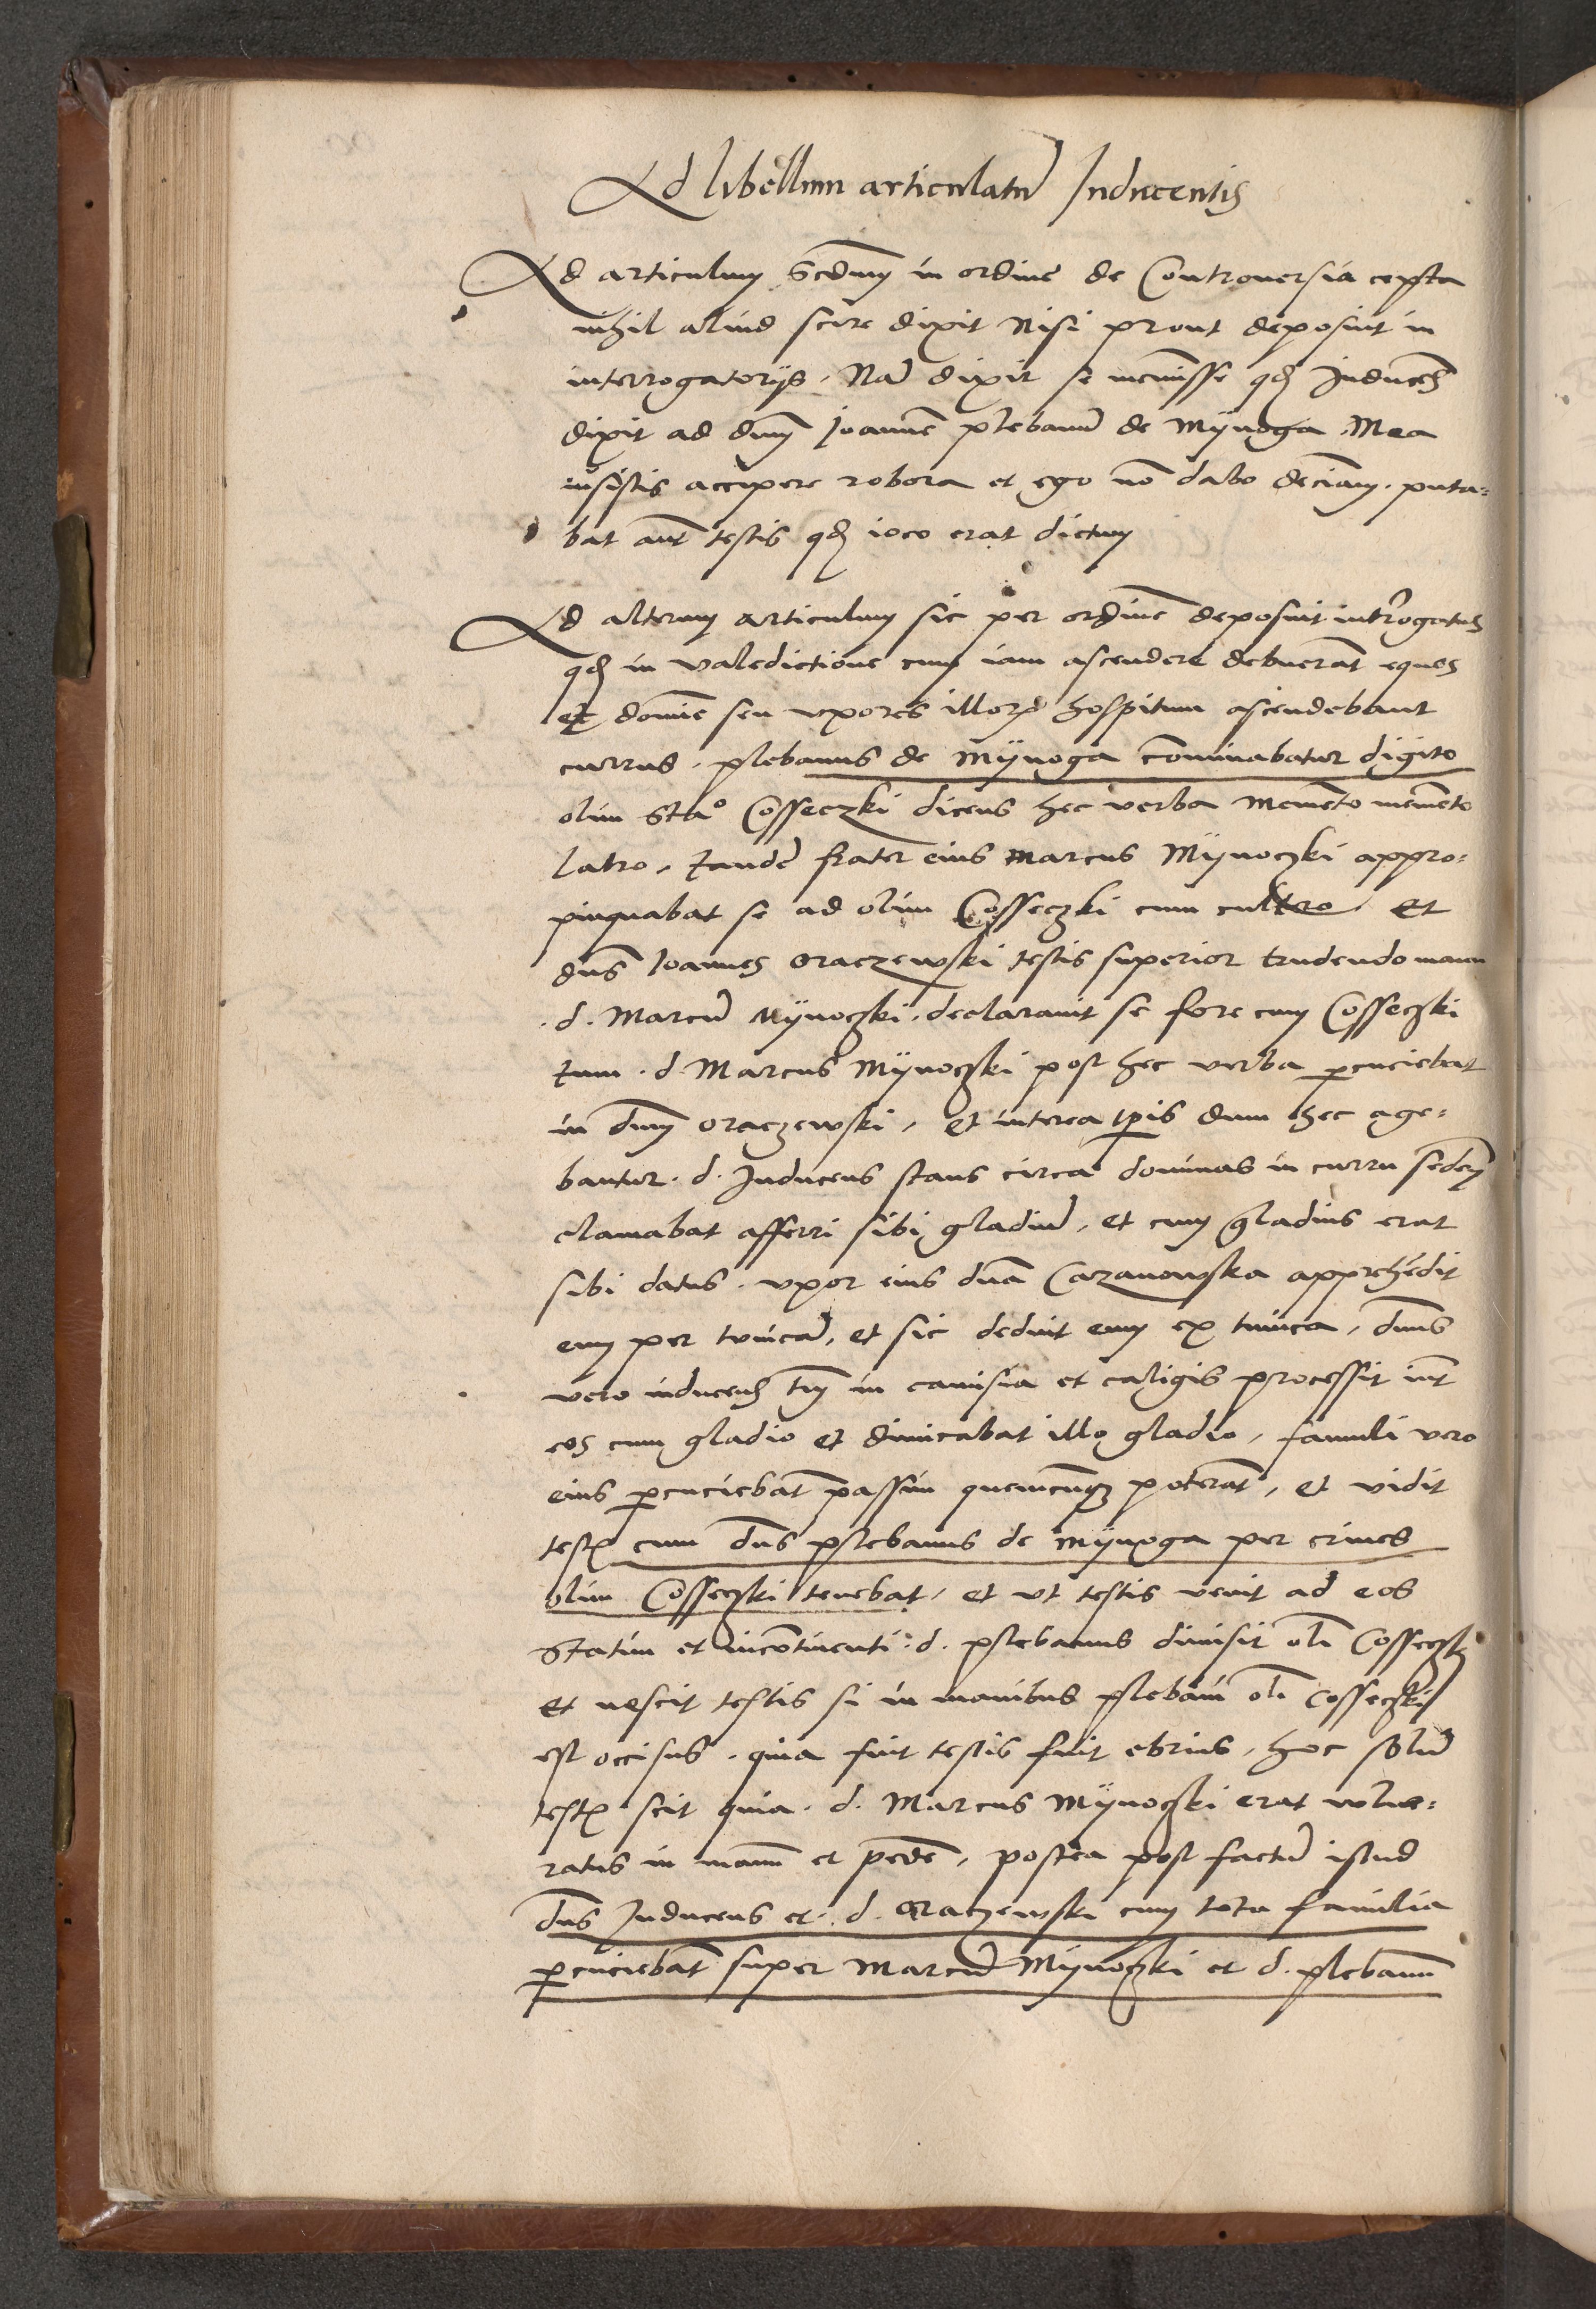 Ad libellum articulatū Inducentis
Ad articulum scdm̄ in ordine de Controuersia cepta
nihil aliud scire dixit Nisi prout deposuit in
interrogatorijs. Nā dixit se meminisse qd Inducens
dixit ad dnm̄ Joannē plebanū de Mÿnoga. Mea
insistis accipere robora et ego nō dabo deciām. puta=
bat aut̄ testis qd ioco erat dictum
Ad alterum articulum sic per ordinē deposuit interrogatus
qd in valedictione cum iam ascendere debuerāt equos
et domīe seu vxores illorꝫ hospitum ascendebant
currus. plebanus de Mÿnoga cōminabatur digito
olim Sta° Cosseczki dicens hec verba Memēto memēto
latro. tandē frater eius Marcus Mÿnoczki appro=
pinquabat se ad olim Cosseczki cum cultro. et
dns̄ Joannes Oraczewski testis superior trudendo manu
.d. Marcū Mÿnoczki. declarauit se fore cum Cosseczki
tum .d. Marcus Mÿnoczki post hec verba ꝑcuciebat
in dnm̄ Oraczewski, et interea tp̄is dum hec age=
bantur .d. Inducens stans circa dominas in curru seden̄
clamabat afferri sibi gladiū, et cum gladius erat
sibi datus. vxor eius dnā Cazanowska apprehēdit
eum per tunicā, et sic deduit eum ex tunica, dnn̄s
vero inducens tm̄ in camisia et caligis processit int̄
eos cum gladio et dimicabat illo gladio, famuli vero
eius ꝑcuciebāt passim quemcunqꝫ poterāt, et vidit
testis cum dns̄ plebanus de Mÿnoga per crines
olim Cosseczki tenebat, et vt testis venit ad eos
statim et incōtinenti .d. plebanus dimisit oli Cosseczki
et nescit testis si in manibus plebani oli Cosseczki
est occisus. quia fuit testis fuit ebrius, hoc solū
testis scit quia .d. Marcus Mÿnoczki erat vulne=
ratus in manū et pedē, postea post factū istud
dns̄ Inducens et .d. Oraczewski cum tota familia
ꝑcuciebāt super Marcū Mÿnoczki et d. plebanū